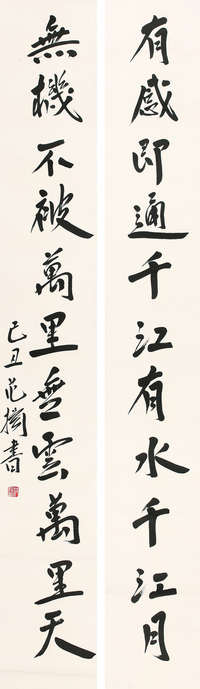 有感即通千江有水千江月
無機不被萬里無雲萬里天
己丑范擒書